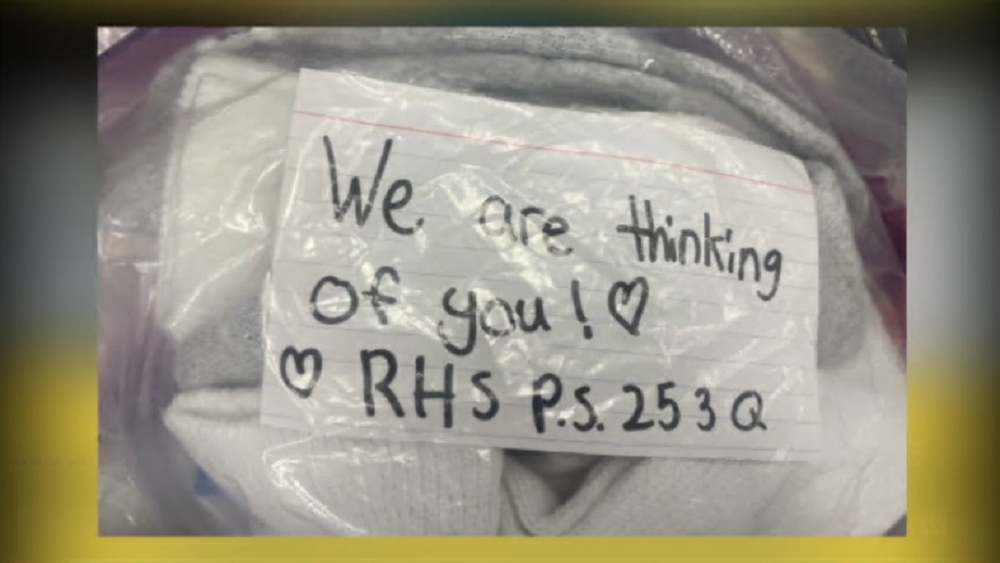 We are thinking
of you! ♡
♡ RHS P.S. 253Q